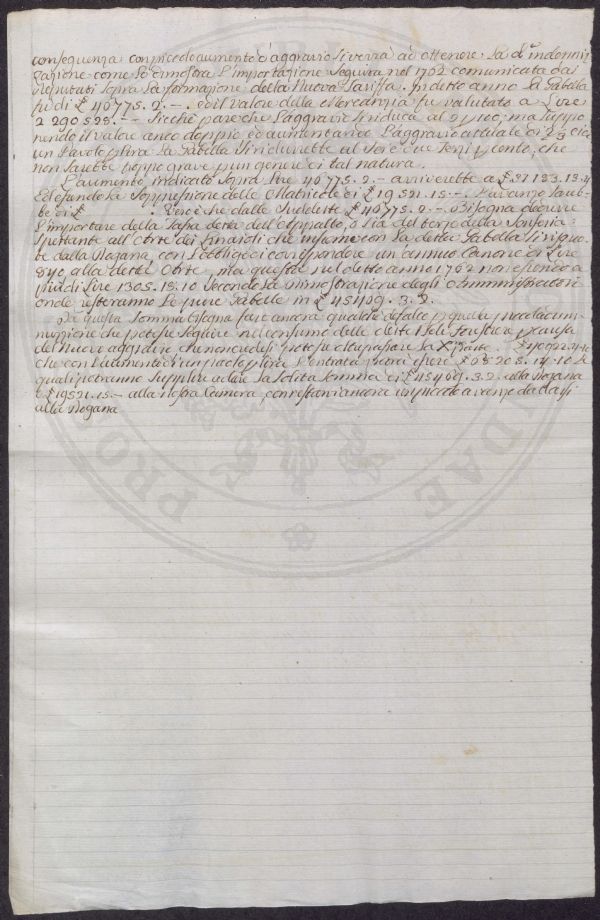 conseguenza con piccolo aumento d'aggravio si verrà ad ottenere la d.ª indenniz
zazione come lo dimostra l'importazione seguita nel 1762 comunicata dai
Deputati sopra la formazione della Nuova Tariffa. In detto anno la Gabella
fu di £ 40775. 2. –. ed il Valore della Mercanzia fu valutato a Lire
2 290 528. – – Sicchè pare che l'aggravio si riduca al 2 p 100, ma suppo
nendo il valore anco doppio ed aumentando l'aggravio attuale di
un Paolo la Gabella si ridurrebbe al due Terzi p cento, che
non sarebbe troppo grave p un genere di tal natura.
L'aumento indicato sopra Lire 40775. 2. – arriverebbe a £
Ed essendo la soppressione delle Matricole di £ 19 521. 15. – l'avanzo sareb-
be di £ Vero è che dalle suddette £ 40775. 2. – Bisogna dedurre
l'importare della Tassa detta dell'Ospedaletto, o sia del terzo della
Spettante all'Arte dei Linaroli che insieme con la detta Gabella si riscuo
te dalla Dogana, con l'obbligo di corrispondere un annuo Canone di Lire
840 alla detta Arte, ma questa nel detto anno 1762 non ascendeva a
più di Lire 1305. 19. 10 secondo la dimostrazione degli Amministratori
onde resteranno le pure Gabelle in £ 45469. 3. 2.
Di questa somma bisogna fare ancora qualche defalco p quella piccola dimi-
nuzione che potesse seguire nel consumo delle dette Tele Forestiere p causa
del nuovo aggravio che non credesi potesse oltrepassare la
che con l'aumento di un paolo p libra l'entrata potrà essere £ 65205. 14. 10 le
quali potranno supplire a dare la solita somma di £ 45469. 3. 2. alla Dogana
e £ 19521. 15 – alla nostra Camera, con restarvi ancora un piccolo avanzo da darsi
alla Dogana